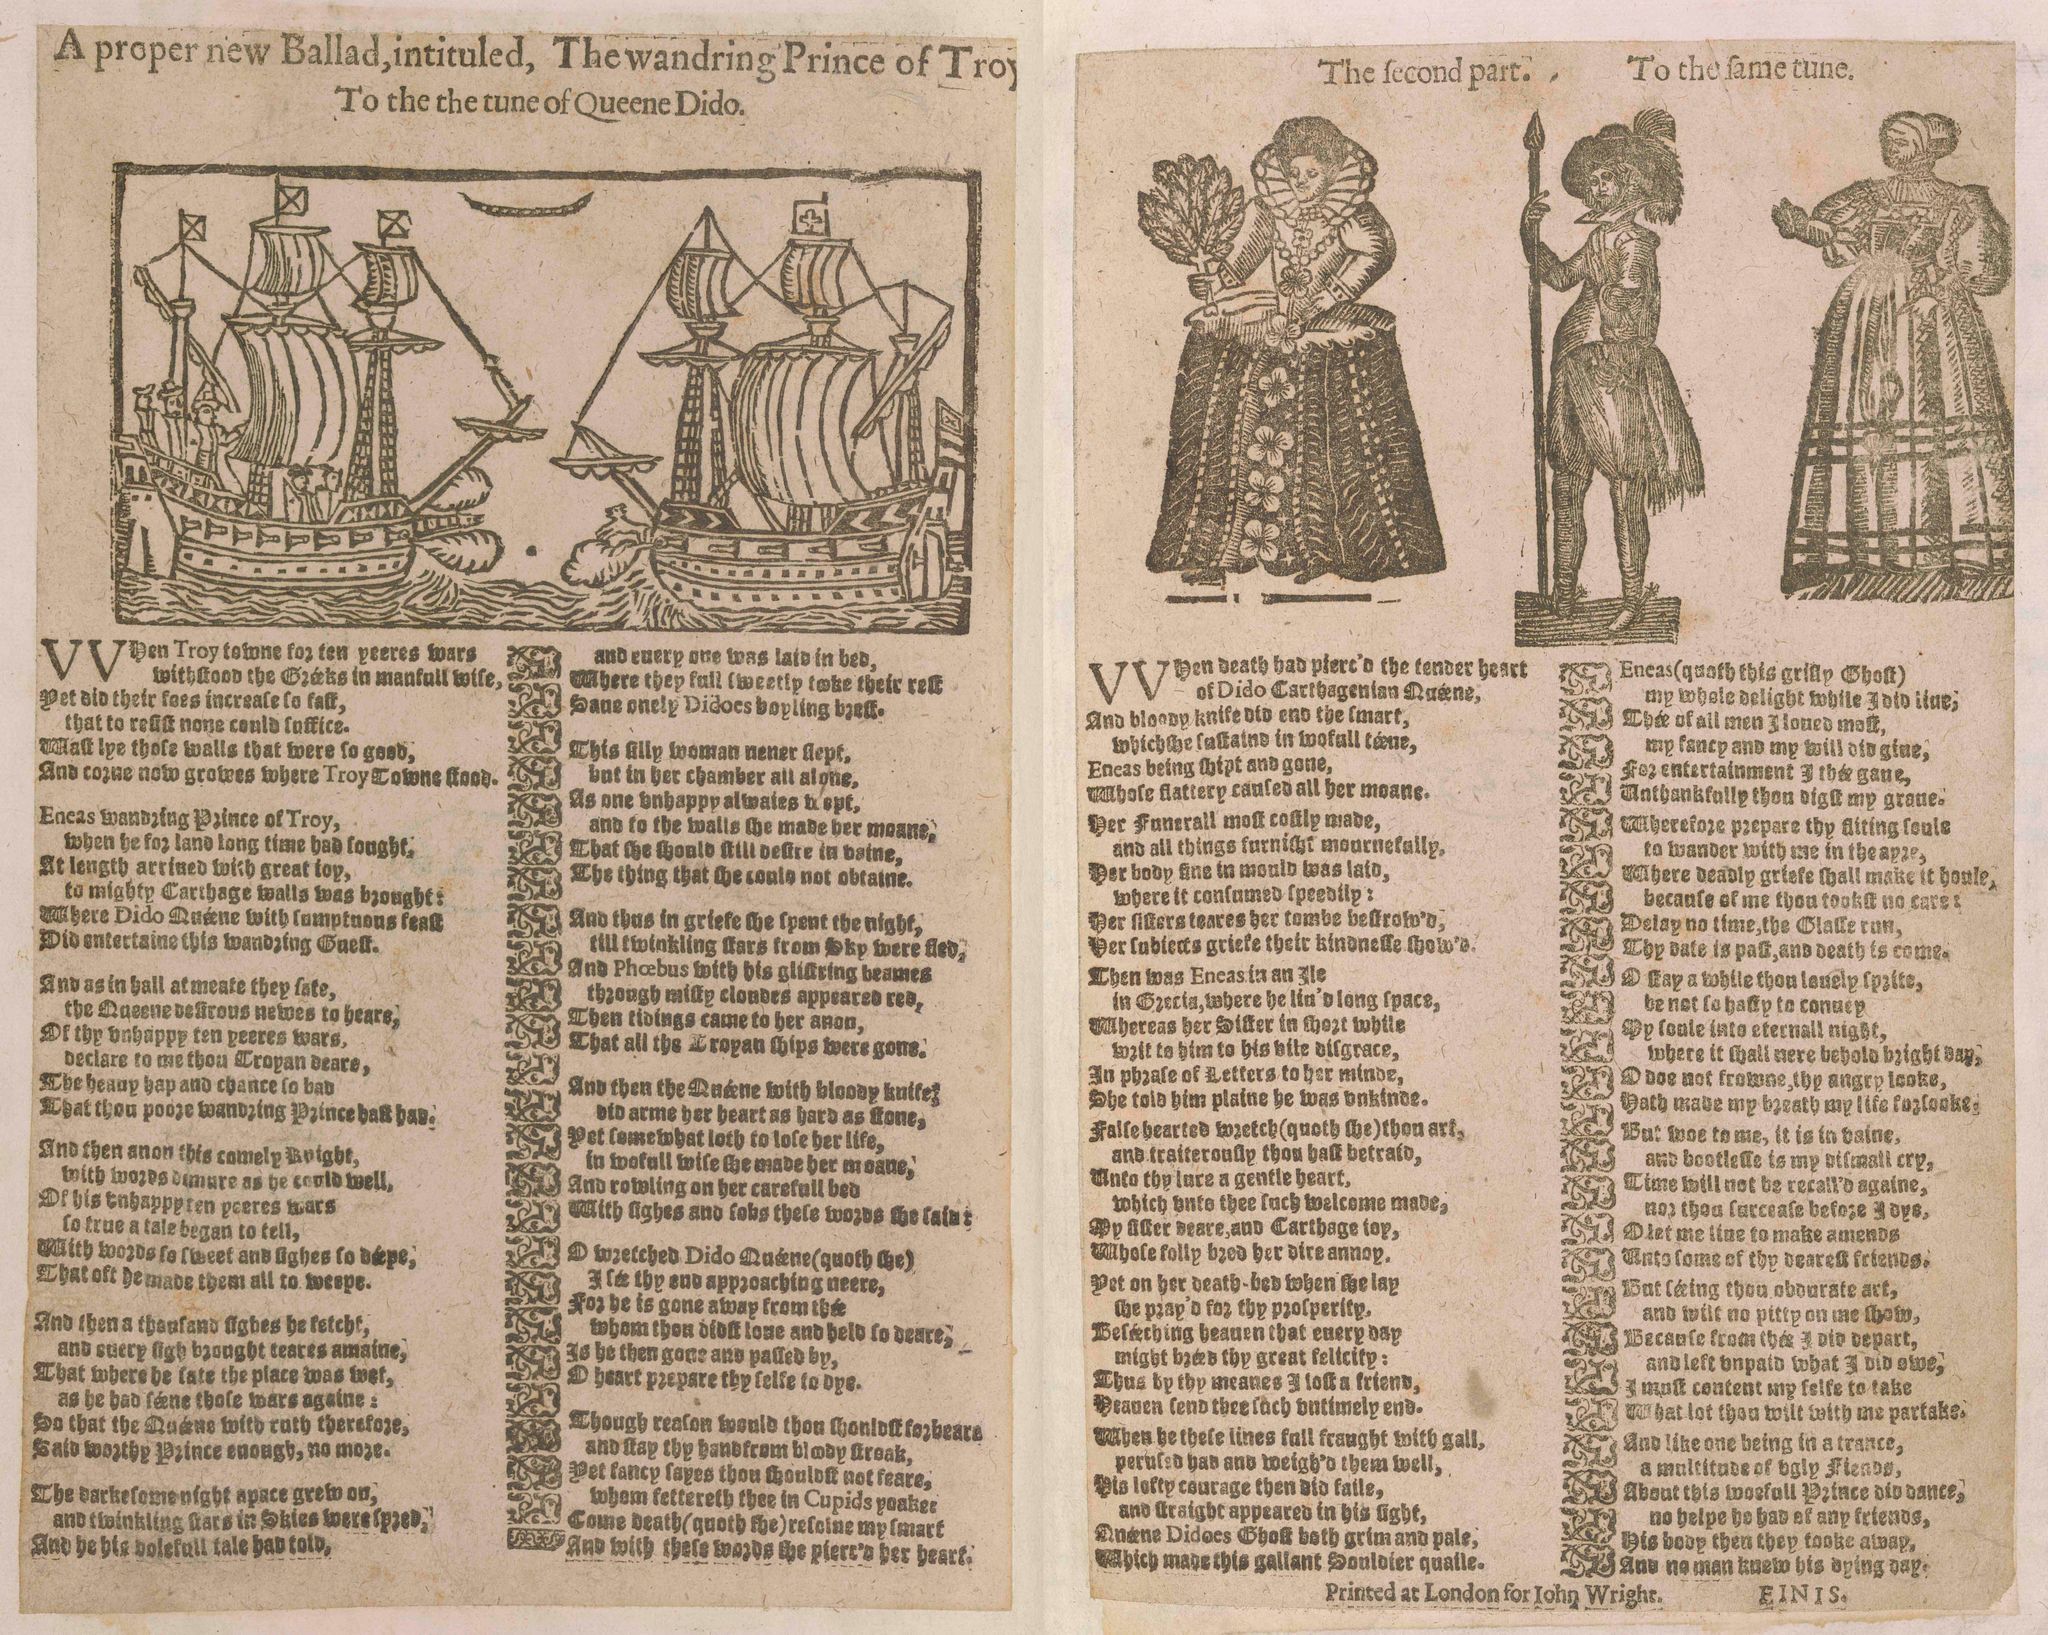 A proper new Ballad, intituled, The wandring Prince of Troy
To the the tune of Queene Dido.
VVHen Troy towne for ten yeeres wars
withstood the Gréeks in manfull wise,
Yet did their foes increase so fast,
that to resist none could suffice.
Wast lye those walls that were so good,
And corne now growes where Troy Towne stood.
Eneas wandring Prince of Troy,
when he for land long time had sought,
At length arriued with great ioy,
to mighty Carthage walls was brought:
Where Dido Quéene with sumptuous feast
Did entertaine this wandring Guest.
And as in hall at meate they sate,
the Queene desirous newes to heare,
Of thy vnhappy ten yeeres wars,
declare to me thou Troyan deare,
The heauy hap and chance so bad
That thou poore wandring Prince hast had.
And then anon this comely Knight,
with words demure as he could well,
Of his vnhappy ten yeeres wars
so true a tale began to tell,
With words so sweet and sighes so déepe,
That oft he made them all to weepe.
And then a thousand sighes he fetcht,
and euery sigh brought teares amaine,
That where he sate the place was wet,
as he had séene those wars againe:
So that the Quéene with ruth therefore,
Said worthy Prince enough, no more.
The darkesome night apace grew on,
and twinkling stars in Skies were spred,
And he his dolefull tale had told,
and euery one was laid in bed,
Where they full sweetly tooke their rest
Saue onely Didoes boyling brest.
This silly woman neuer slept,
but in her chamber all alone,
As one vnhappy alwaies wept,
and to the walls she made her moane,
That she should still desire in vaine,
The thing that she could not obtaine.
And thus in griefe she spent the night,
till twinkling stars from Sky were fled,
And Phœbus with his glistring beames
through misty cloudes appeared red,
Then tidings came to her anon,
That all the Troyan ships were gone.
And then the Quéene with bloody knife
did arme her heart as hard as stone,
Yet somewhat loth to lose her life,
in wofull wise she made her moane,
And rowling on her carefull bed
With sighes and sobs these words she said:
O wretched Dido Quéene (quoth she)
I sée thy end approaching neere,
For he is gone away from thée
whom thou didst loue and held so deare,
Is he then gone and passed by,
O heart prepare thy selfe to dye.
Though reason would thou shouldst forbeare
and stay thy hand from bloody stroak,
Yet fancy sayes thou shouldst not feare,
whom fettereth thee in Cupids yoake:
Come death (quoth she) resolue my smart
And with these words she pierc'd her heart.
The second part. To the same tune.
VVHen death had pierc'd the tender heart
of Dido Carthagenian Quéene,
And bloody knife did end the smart,
which she sustaind in wofull téene,
Eneas being shipt and gone,
Whose flattery caused all her moane.
Her Funerall most costly made,
and all things furnisht mournefully,
Her body fine in mould was laid,
where it consumed speedily:
Her sisters teares her tombe bestrow'd,
Her subiects griefe their kindnesse show'd.
Then was Eneas in an Ile
in Grecia, where he liu'd long space,
Whereas her Sister in short while
writ to him to his vile disgrace,
In phrase of Letters to her minde,
She told him plaine he was vnkinde.
False hearted wretch (quoth she) thou art,
and traiterously thou hast betraid,
Unto thy lure a gentle heart,
which vnto thee such welcome made,
My sister deare, and Carthage ioy,
Whose folly bred her dire annoy.
Yet on her death-bed when she lay
she pray'd for thy prosperity,
Beséeching heauen that euery day
might bréed thy great felicity:
Thus by thy meanes I lost a friend,
Heauen send thee such vntimely end.
When he these lines full fraught with gall,
perused had and weigh'd them well,
His lofty courage then did faile,
and straight appeared in his sight,
Quéene Didoes Ghost both grim and pale,
Which made this gallant Souldier quaile.
Eneas (quoth this grisly Ghost)
my whole delight while I did liue,
Thée of all men I loued most,
my fancy and my will did giue,
For entertainment I thée gaue,
Unthankfully thou digst my graue.
Wherefore prepare thy fliting soule
to wander with me in the ayre,
Where deadly griefe shall make it houle,
because of me thou tookst no care:
Delay no time, the Glasse run,
Thy date is past, and death is come.
O stay a while thou louely sprite,
be not so hasty to conuey
My soule into eternall night,
where it shall nere behold bright day,
O doe not frowne, thy angry looke,
Hath made my breath my life forsooke.
But woe to me, it is in vaine,
and bootlesse is my dismall cry,
Time will not be recall'd againe,
nor thou surcease before I dye,
O let me liue to make amends
Unto some of thy dearest friends.
But séeing thou obdurate art,
and wilt no pitty on me show,
Because from thée I did depart,
and left vnpaid what I did owe,
I must content my selfe to take
What lot thou wilt with me partake.
And like one being in a trance,
a multitude of vgly Fiends,
About this woefull Prince did dance,
no helpe he had of any friends,
His body then they tooke away,
And no man knew his dying day.
Printed at London for Iohn Wright. FINIS.